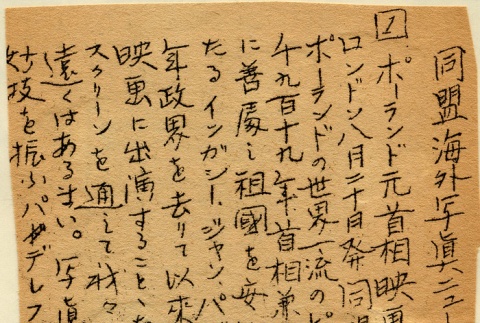 同盟海外写真ニュー
1 ポーランド元首相映画
ロンドン八月二十日発 同
ポーランドの世界一流のピ
千九百十九年首相兼
に善處し祖國を安
たるイングシー、ジャン、パ
年政界を去りて以来
映画に出演すること、な
スクリーンを通して、我々
遠くはあるまい。写真
技を振ふパデレフ